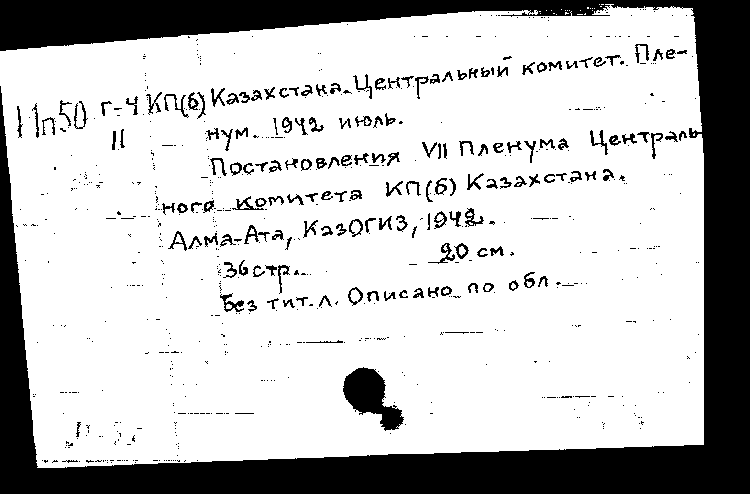 11п50 г-4 КП(б) Казахстана. Центральный комитет. Пле-
11 нум. 1942 июль.
Постановления VII Пленума Централь-
ного комитета КП(б) Казахстана.
Алма-Ата, КазОГИЗ, 1942.
36 стр. 20 см.
Без тит. л. Описано по обл.